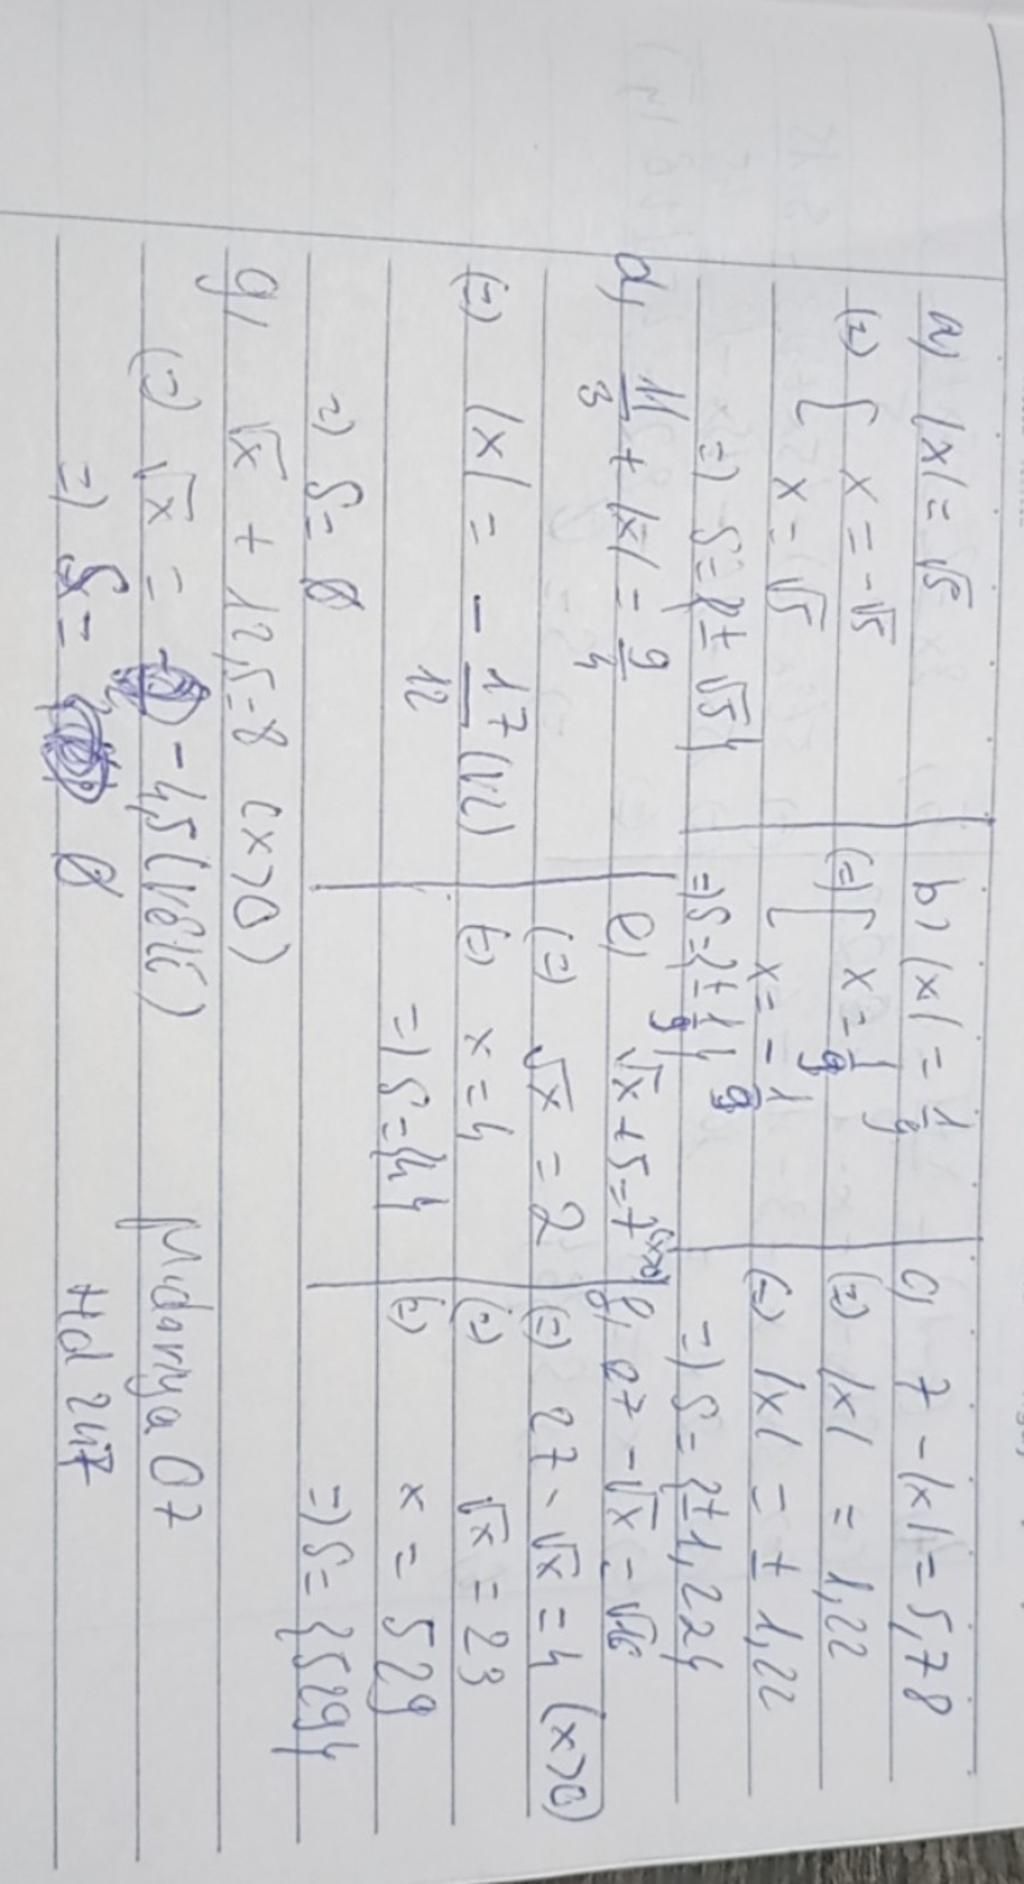 a) |x| = √5
(=) [ x = -√5
x = √5
=) S = {± √5}
b) |x| = 1/9
(=) [ x = 1/9
x = - 1/9
=) S = {± 1/9}
c) 7 - |x| = 5,78
(=) |x| = 1,22
(=) |x| = ± 1,22
=) S = {±1,22}
d, 11/3 + |x| = 9/4
(=) |x| = - 17/12 (VL)
=) S = ∅
e) √x + 5 = 7 (x>0)
(=) √x = 2
(=) x = 4
=) S = {4}
f, 27 - √x = √16
(=) 27 - √x = 4 (x>0)
(=) √x = 23
(=) x = 529
=) S = {529}
g, √x + 12,5 = 8 (x>0)
(=) √x = - 4,5 (vôlí)
=) S = ∅
Mdanya07
Hd 247